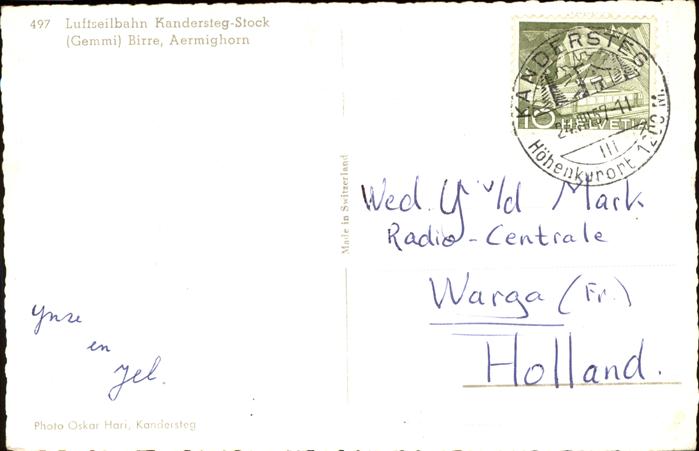 497 Luftseilbahn Kandersteg-Stock
(Gemmi) Birre, Aermighorn
KANDERSTEG
10
HELVETIA
Höhenkurort 1200 M.
Made in Switzerland
Wed. Y v/d Mark
Radio-Centrale
Warga (Fr.)
Holland.
Ynse
en
Jel.
Photo Oskar Hari, Kandersteg